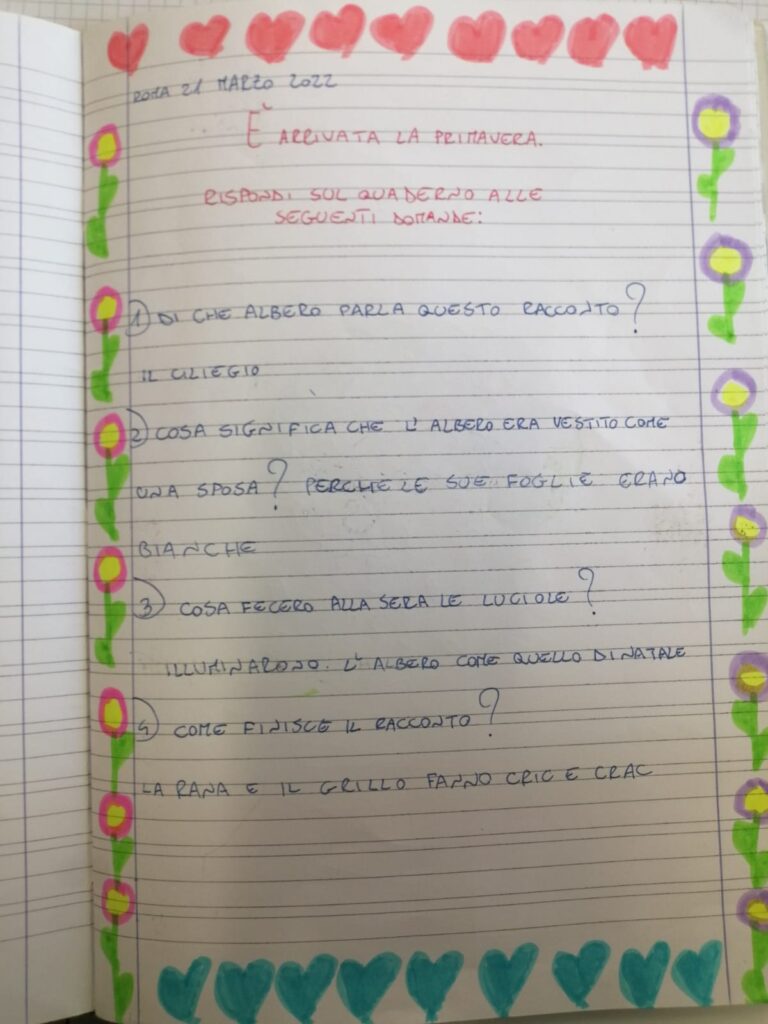 ROMA 21 MARZO 2022
È ARRIVATA LA PRIMAVERA.
RISPONDI SUL QUADERNO ALLE
SEGUENTI DOMANDE:
1) DI CHE ALBERO PARLA QUESTO RACCONTO?
IL CILIEGIO
2) COSA SIGNIFICA CHE L'ALBERO ERA VESTITO COME
UNA SPOSA? PERCHE LE SUE FOGLIE ERANO
BIANCHE
3) COSA FECERO ALLA SERA LE LUCIOLE?
ILLUMINARONO L'ALBERO COME QUELLO DI NATALE
4) COME FINISCE IL RACCONTO?
LA RANA E IL GRILLO FANNO CRIC E CRAC